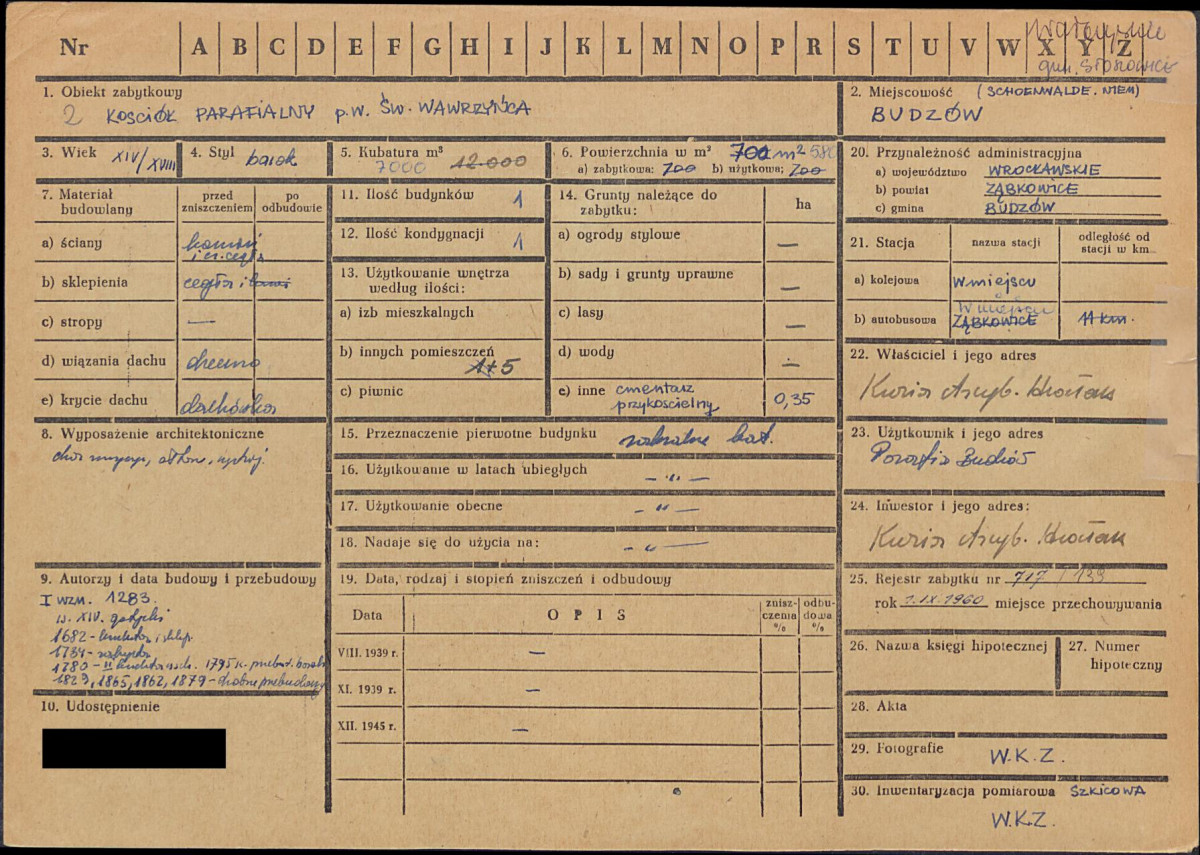 Nr A B C D E F G H I J K L M N O P R S T U V W X Y Z
gm. STOSZOWICE
1. Obiekt zabytkowy
2 KOŚCIÓŁ PARAFIALNY p.w. ŚW. WAWRZYŃCA
2. Miejscowość (SCHOENWALDE. NIEM)
BUDZÓW
3. Wiek XIV/XVIII
4. Styl barok
5. Kubatura m³
7000 12.000
6. Powierzchnia w m² 700 m² 580
a) zabytkowa: 700 b) użytkowa: 700
7. Materiał budowlany
przed zniszczeniem
po odbudowie
a) ściany kamień i cz. cegła
b) sklepienia cegła i
c) stropy —
d) wiązania dachu drewno
e) krycie dachu dachówka
8. Wyposażenie architektoniczne
chór muzycz,
9. Autorzy i data budowy i przebudowy
I WZM. 1283.
w. XIV. gotycki
1682 -
1734 -
1780 - 1795 r.
1823, 1865, 1862, 1879 - drobne przebudowy
10. Udostępnienie
11. Ilość budynków 1
12. Ilość kondygnacji 1
13. Użytkowanie wnętrza według ilości:
a) izb mieszkalnych
b) innych pomieszczeń
1+5
c) piwnic
14. Grunty należące do zabytku:
ha
a) ogrody stylowe —
b) sady i grunty uprawne —
c) lasy —
d) wody —
e) inne cmentarz przykościelny 0,35
15. Przeznaczenie pierwotne budynku sakralne kat.
16. Użytkowanie w latach ubiegłych — " —
17. Użytkowanie obecne — " —
18. Nadaje się do użycia na: — " —
19. Data, rodzaj i stopień zniszczeń i odbudowy
Data
O P I S
znisz-czenia %
odbu-dowa %
VIII. 1939 r. —
XI. 1939 r. —
XII. 1945 r. —
20. Przynależność administracyjna
a) województwo WROCŁAWSKIE
b) powiat ZĄBKOWICE
c) gmina BUDZÓW
21. Stacja
nazwa stacji
odległość od stacji w km
a) kolejowa w miejscu
w miejscu
b) autobusowa ZĄBKOWICE 11 km.
22. Właściciel i jego adres
Kuria Arcyb. Wrocław
23. Użytkownik i jego adres
Parafia Budzów
24. Inwestor i jego adres:
Kuria Arcyb. Wrocław
25. Rejestr zabytku nr 717 / 139
rok 1.IX.1960 miejsce przechowywania
26. Nazwa księgi hipotecznej
27. Numer hipoteczny
28. Akta
29. Fotografie
W.K.Z.
30. Inwentaryzacja pomiarowa SZKICOWA
W.K.Z.